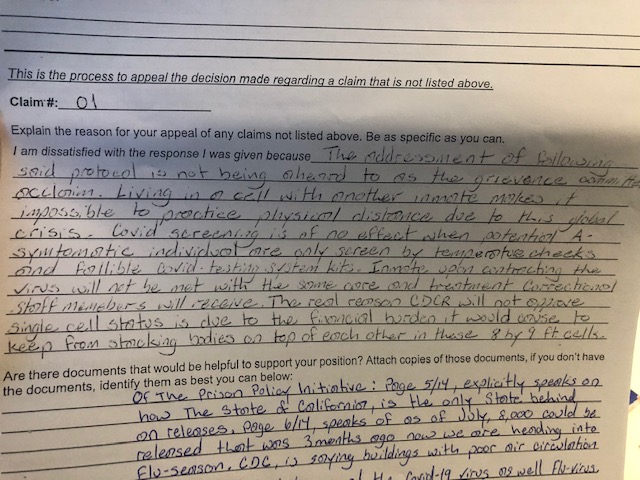 This is the process to appeal the decision made regarding a claim that is not listed above.
Claim #: 01
Explain the reason for your appeal of any claims not listed above. Be as specific as you can.
I am dissatisfied with the response I was given because The addressment of following
said protocol is not being ahered to as the grievance
acclaim. Living in a cell with another inmate makes it
impossible to practice physical distance due to this global
crisis. Covid screening is of no effect when potential A-
symtomatic individual are only screen by temperature checks
and fallible covid-testing system kits. Inmate, upon contracting the
virus will not be met with the same care and treatment Correctional
Staff memebers will receive. The real reason CDCR will not approve
single cell status is due to the financial burden it would cause to
keep from stacking bodies on top of each other in these 8 by 9 ft cells.
Are there documents that would be helpful to support your position? Attach copies of those documents, if you don't have
the documents, identify them as best you can below:
Of The Prison Policy Initiative: Page 5/14, explicitly speaks on
how The State of California, is the only State behind
on releases. Page 6/14, speaks of as of July, 8,000 could be
released that was 3 months ago now we are heading into
Flu-season. CDC, is saying buildings with poor air circulation
Covid-19 virus as well Flu-virus.